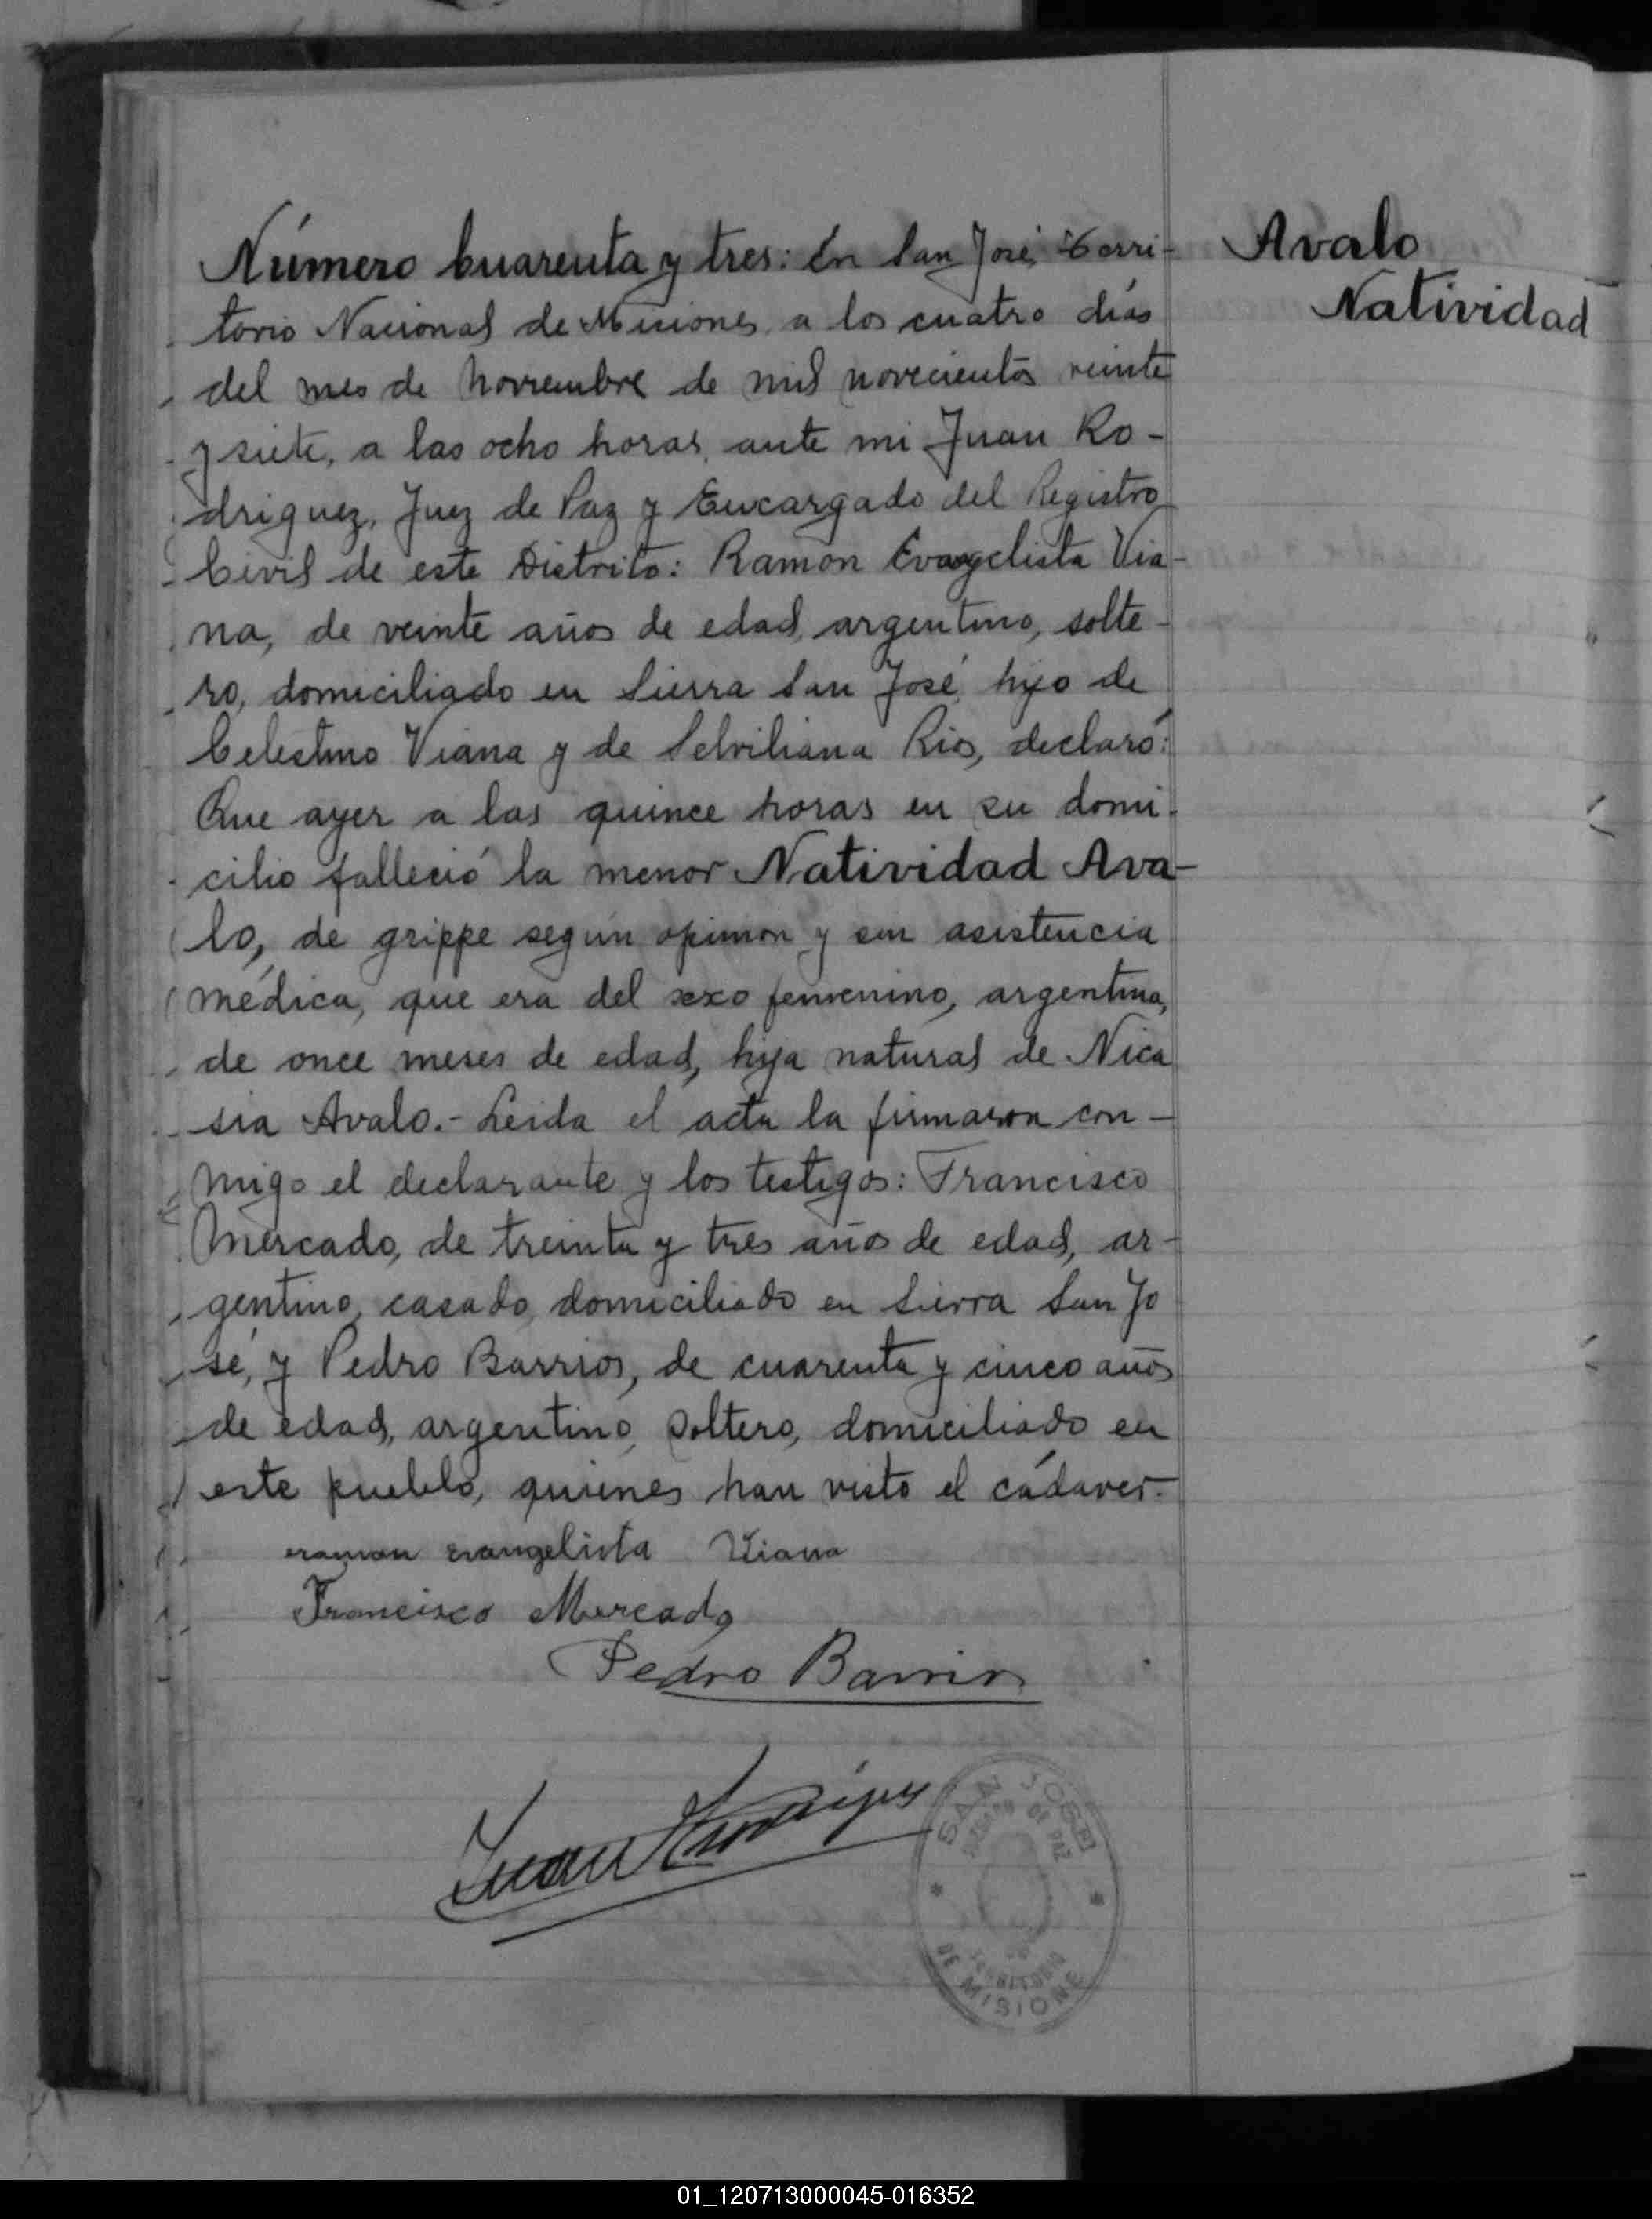 Número Cuarenta y tres: En San José, Terri-
torio Nacional de Misiones, a los cuatro dias
del mes de Noviembre de mil novecientos veinte
y siete, a las ocho horas, ante mi Juan Ro-
driguez, Juez de Paz y Encargado del Registro
Civil de este Distrito: Ramón Evangelista Via-
na, de veinte años de edad, argentino, solte-
ro, domiciliado en Sierra San José, hijo de
Celestino Viana y de Selviliana Rios, declaró:
Que ayer a las quince horas en su domi-
cilio falleció la menor Natividad Ava-
lo, de grippe según opinion y sin asistencia
médica, que era del sexo femenino, argentina,
de once meses de edad, hija natural de Nica
sia Avalo.- Leida el acta la firmaron con-
migo el declarante y los testigos: Francisco
Mercado, de treinta y tres años de edad, ar-
gentino, casado, domiciliado en Sierra San Jo
sé, y Pedro Barrios, de cuarenta y cinco años
de edad, argentino, soltero, domiciliado en
este pueblo, quienes han visto el cádaver.-
Avalo
Natividad
ramon evangelista Viana
Francisco Mercado
Pedro Barrios
Juan Rodriguez
SAN JOSE
JUZGADO DE PAZ
TERRITORIO
DE MISIONES
01_120713000045-016352